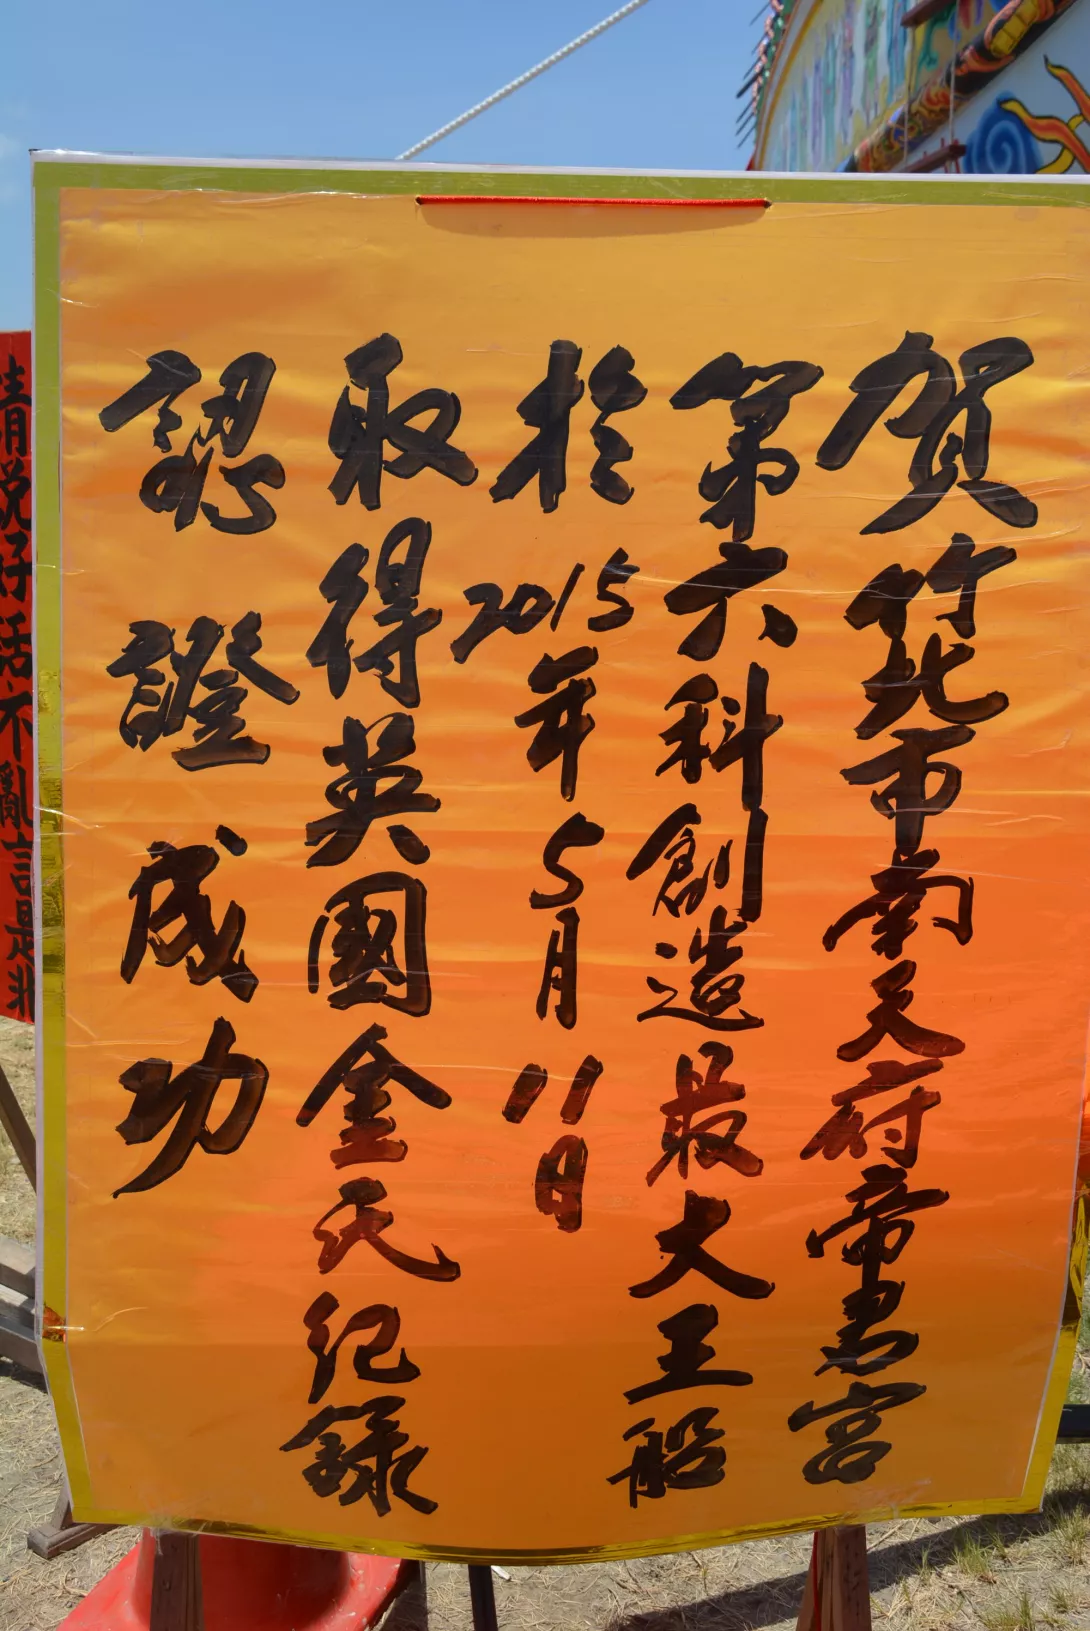 賀竹北市南天府帝君宮
第六科創造最大王船
於2015年5月11日
取得英國金氏紀錄
認證成功
請說好話不亂言是非